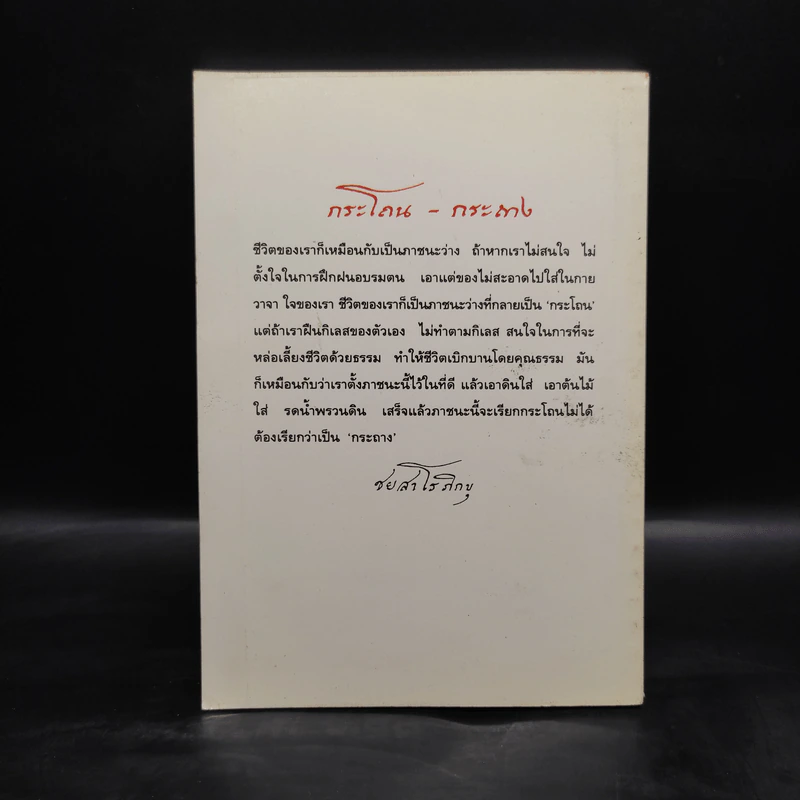 กระโถน - กระถาง
ชีวิตของเราก็เหมือนกับเป็นภาชนะว่าง ถ้าหากเราไม่สนใจ ไม่
ตั้งใจในการฝึกฝนอบรมตน เอาแต่ของไม่สะอาดไปใส่ในกาย
วาจา ใจของเรา ชีวิตของเราก็เป็นภาชนะว่างที่กลายเป็น ‘กระโถน’
แต่ถ้าเราฝืนกิเลสของตัวเอง ไม่ทำตามกิเลส สนใจในการที่จะ
หล่อเลี้ยงชีวิตด้วยธรรม ทำให้ชีวิตเบิกบานโดยคุณธรรม มัน
ก็เหมือนกับว่าเราตั้งภาชนะนี้ไว้ในที่ดี แล้วเอาดินใส่ เอาต้นไม้
ใส่ รดน้ำพรวนดิน เสร็จแล้วภาชนะนี้จะเรียกกระโถนไม่ได้
ต้องเรียกว่าเป็น ‘กระถาง’
ชยสาโรภิกขุ